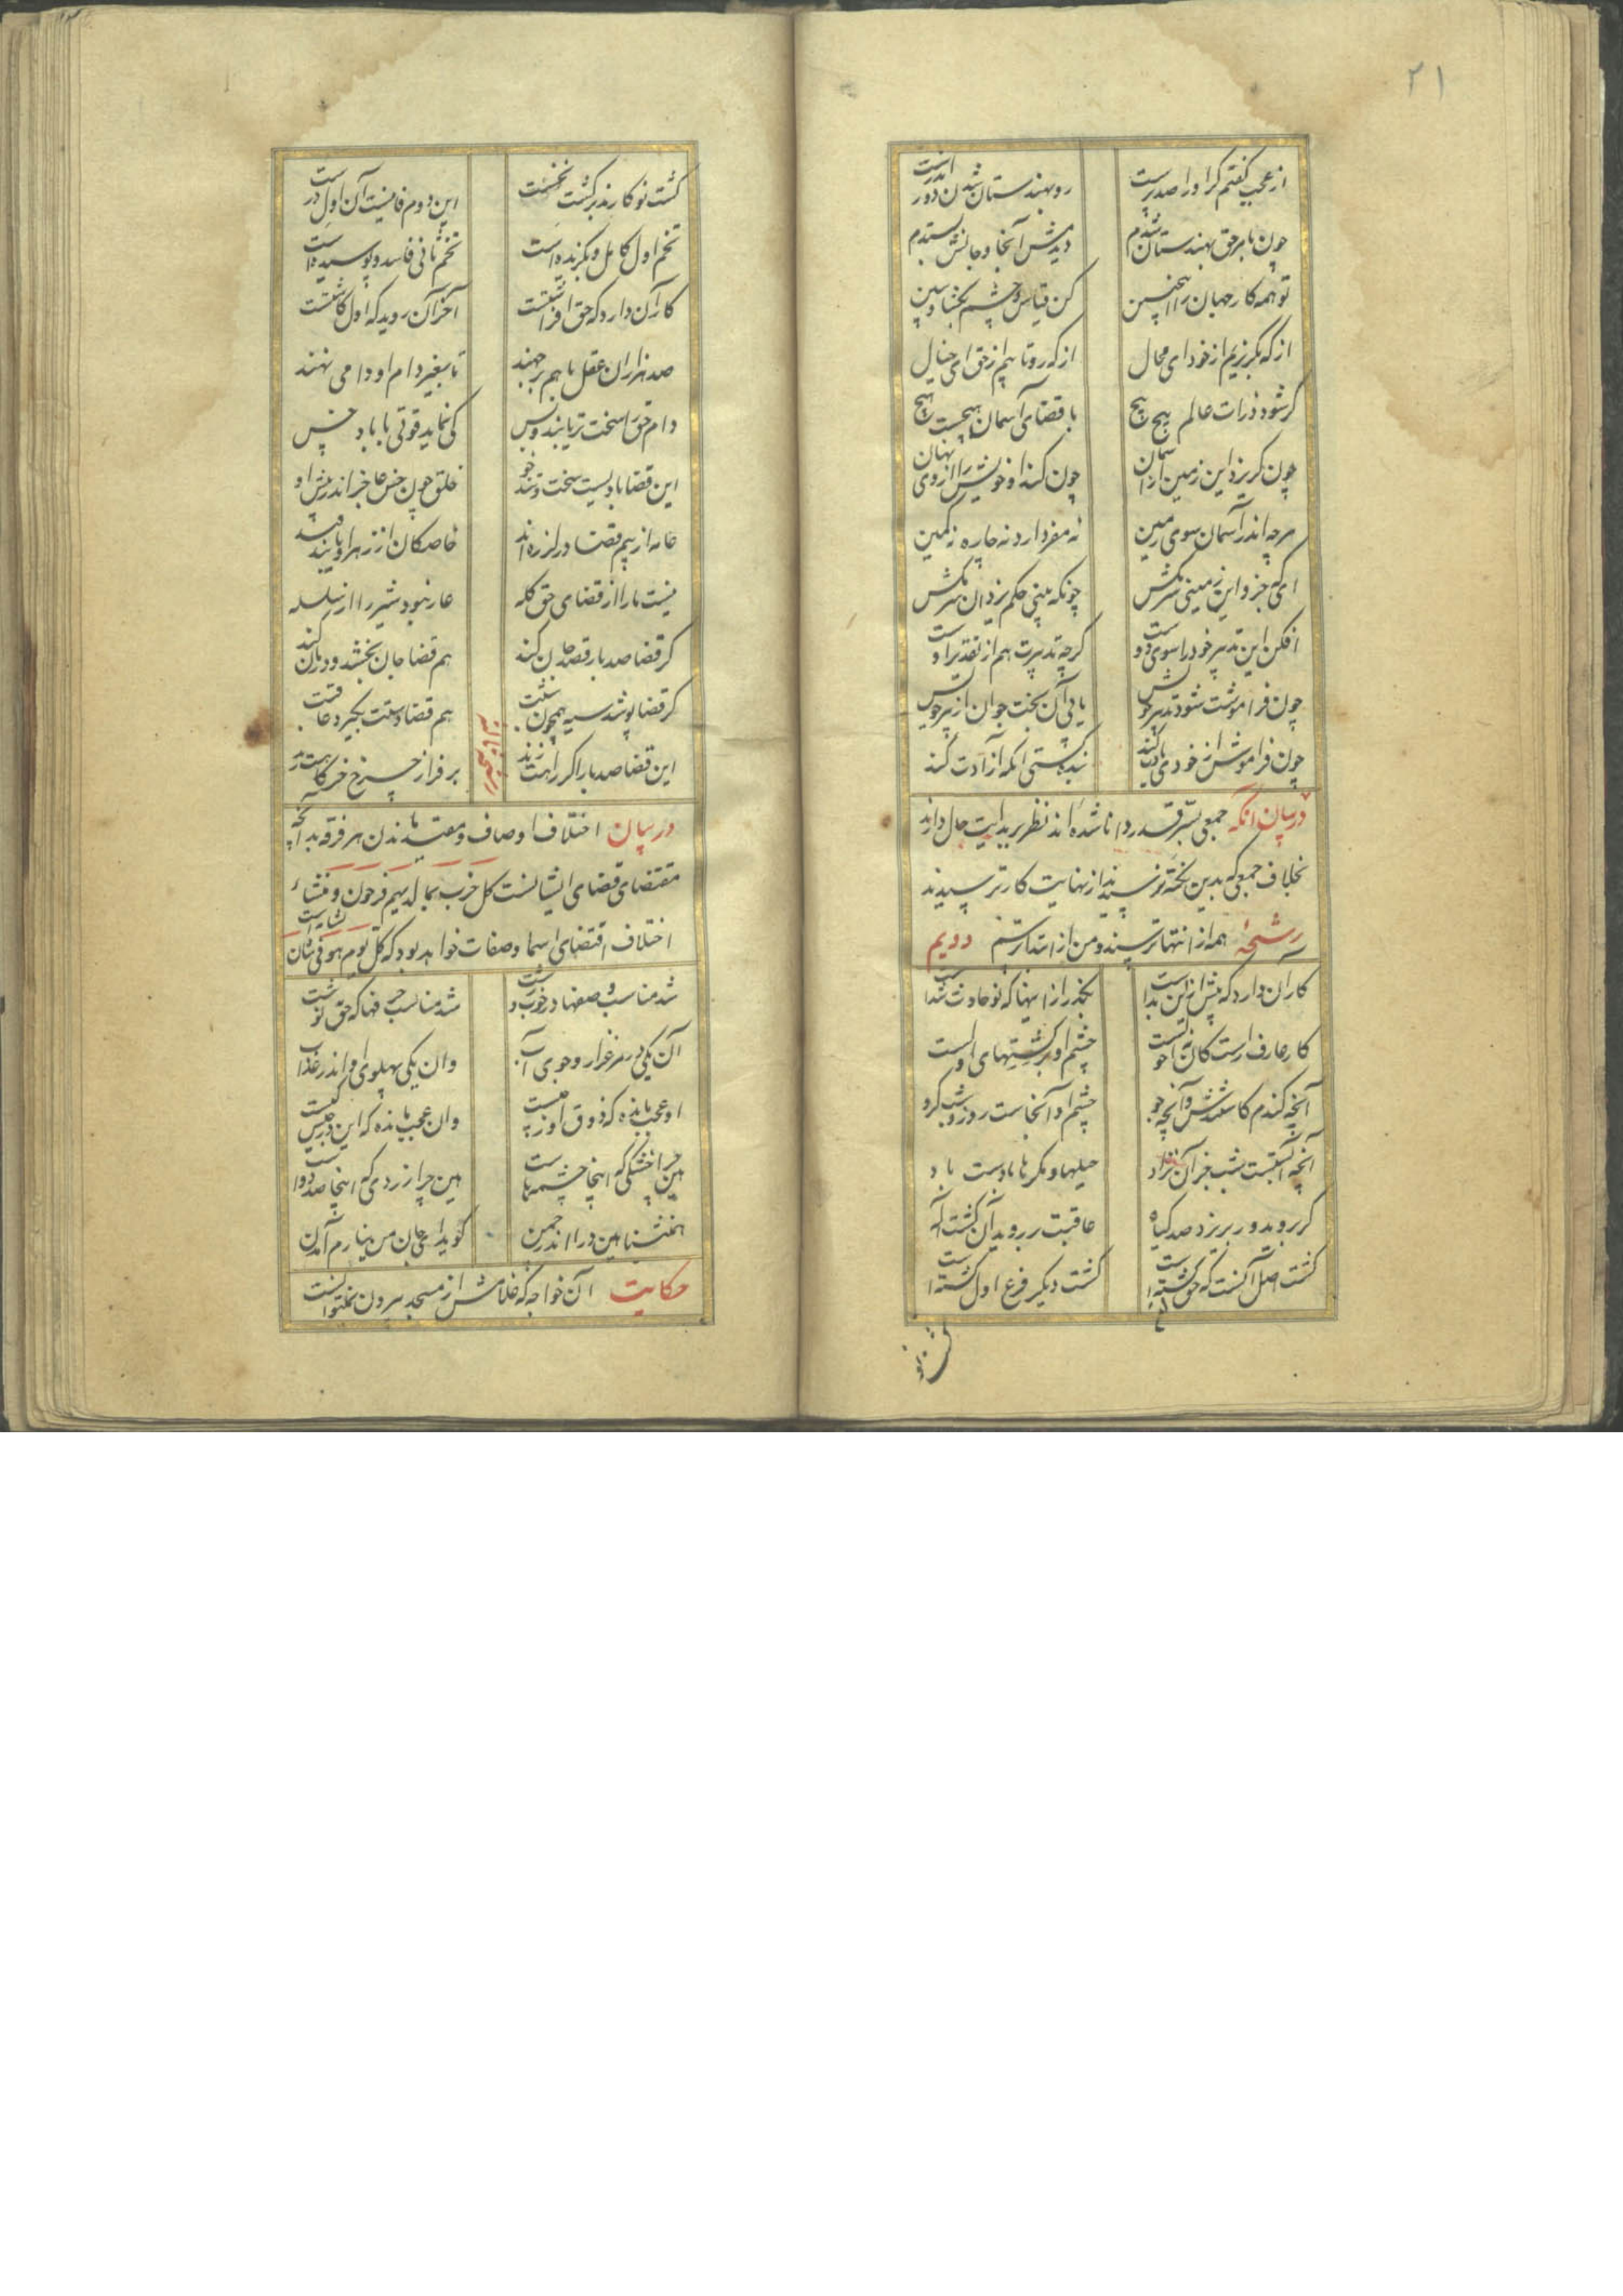 ۲۱
از عجب گفتم گر او را صد پرست
رو بهندستان شدن دور اندرست
چون بامر حق بهندستان شدم
دیدمش آنجا و جانش بستدم
تو همه کار جهان را همچنین
کن قیاس و چشم بگشا و ببین
از که بگریزیم از خود ای محال
از که رو تابیم از حق ای خیال
گر شود ذرات عالم پیچ پیچ
با قضای آسمان هیچست هیچ
چون گریزد این زمین از آسمان
چون کند او خویش را از وی نهان
هرچه اندر آسمان سوی زمین
نه مفر دارد نه چاره نه کمین
ای که جزو این زمینی سر مکش
چونکه بینی حکم یزدان سر مکش
افکن این تدبیر خود را سوی دوست
گرچه تدبیرت هم از تقدیر اوست
چون فراموشت شود تدبیر خویش
یابی آن بخت جوان از پیر خویش
چون فراموش از خودی یادت کنند
بنده گشتی آنگه آزادت کنند
در بیان آنکه جمعی بسر قدر دانا شده اند نظر بر بدایت حال دارند
بخلاف جمعی که بدین نکته نرسیدند از نهایت کار ترسیدند
رشحهٔ همه از انتها ترسند و من از ابتدا ترسم دویم
کار آن دارد که پیش از این بدست
بگذر از اینها که نو حادث شدست
کار عارف راست کان نه احولست
چشم او بر کشتهای اولست
آنچه گندم کاشتندش و آنچه جو
چشم او آنجاست روز و شب گرو
آنچه آبستست شب جز آن نزاد
حیلها و مکرها بادست باد
گر بروید ور بریزد صد گیاه
عاقبت بر روید آن کشته آله
کشت اصل آنست که حق کشته است
کشت دیگر فرع اول کشته است
کشت نو
کشت نو کارند بر کشت نخست
این دوم فانیست آن اول درست
تخم اول کامل و بگزیده است
تخم ثانی فاسد و پوسیده است
کار آن دارد که حق افراشتست
آخر آن روید که اول کاشتست
صد هزاران عقل با هم برجهند
تا بغیر دام او دامی نهند
دام حق را سخت تر یابند و بس
کی نماید قوتی با باد خس
این قضا بادیست سخت و تندخو
خلق چون خس عاجز اندر پیش او
عامه از بیم قضا در لرزه اند
خاصگان از زهر او پابند
نیست ما را از قضای حق گله
عار نبود شیر را از سلسله
گر قضا صد بار قصد جان کند
هم قضا جان بخشد و درمان کند
گر قضا پوشد سیه همچون شبت
هم قضا دستت بگیرد عاقبت
این قضا صد بار اگر راهت زند
بر فراز چرخ خرگاهت زند
در بیان اختلاف اوصاف و مقید ماندن هر فرقه بدآنچه
مقتضای قضای ایشانست کل حزب بما لدیهم فرحون و منشاء
اختلاف اقتضای اسما و صفات خواهد بود که کل یوم هو فی شان
شد مناسب وصفها در خوب و زشت
شد مناسب حرفها که حق نوشت
آن یکی در مرغزار و جوی آب
وان یکی پهلوی او اندر عذاب
او عجب مانده که ذوق او ز چیست
وان عجب مانده که این در حبس کیست
هین چرا خشکی که اینجا چشمه هاست
هین چرا زردی که اینجا صد دواست
همنشینا هین درا اندر چمن
گوید ای جان من نیارم آمدن
حکایت آن خواجه که غلامش از مسجد بیرون نمیتوانست